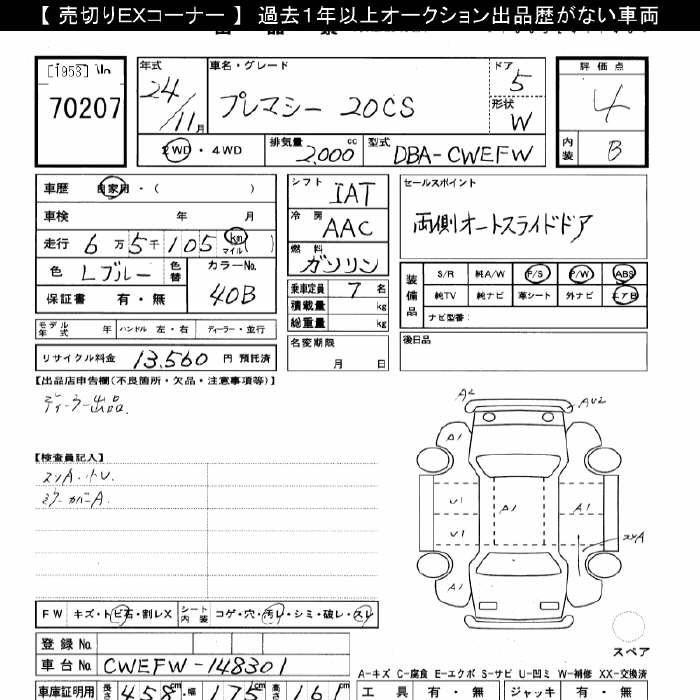 【 売切りEXコーナー 】 過去１年以上オークション出品歴がない車両
[1953]
70207
年式 24/11月
車名・グレード
プレマシー 20CS
ドア 5
形状 W
2WD・4WD
排気量 2,000 cc
型式 DBA-CWEFW
評価点 4
内装 B
車歴 自家用・( )
車検 年 月
走行 6万5千105 km マイル ( )
色 Lブルー 色替
カラーNo. 40B
保証書 有・無
モデル年式 年 ハンドル 左・右 ディーラー・並行
リサイクル料金 13,560 円 預託済
シフト IAT
冷房 AAC
燃料 ガソリン
乗車定員 7 名
積載量 kg
総重量 kg
名変期限
月 日
セールスポイント
両側オートスライドドア
装備品
S/R 純A/W P/S P/W ABS
純TV 純ナビ 革シート 外ナビ エアB
ナビ型番：
後日品
【出品店申告欄(不良箇所・欠品・注意事項等)】
ディーラー出品
【検査員記入】
A2
A1
U1
A1
A1
U1
A1
スペア
FW キズ・トビ石・割レX
シート内装 コゲ・穴・汚レ・シミ・破レ・スレ
登録 No.
車台 No. CWEFW-148301
A-キズ C-腐食 E-エクボ S-サビ U-凹ミ W-補修 XX-交換済
車庫証明用 長さ 458 cm・幅 175 cm 高さ 161 cm
工具 有・無 ジャッキ 有・無